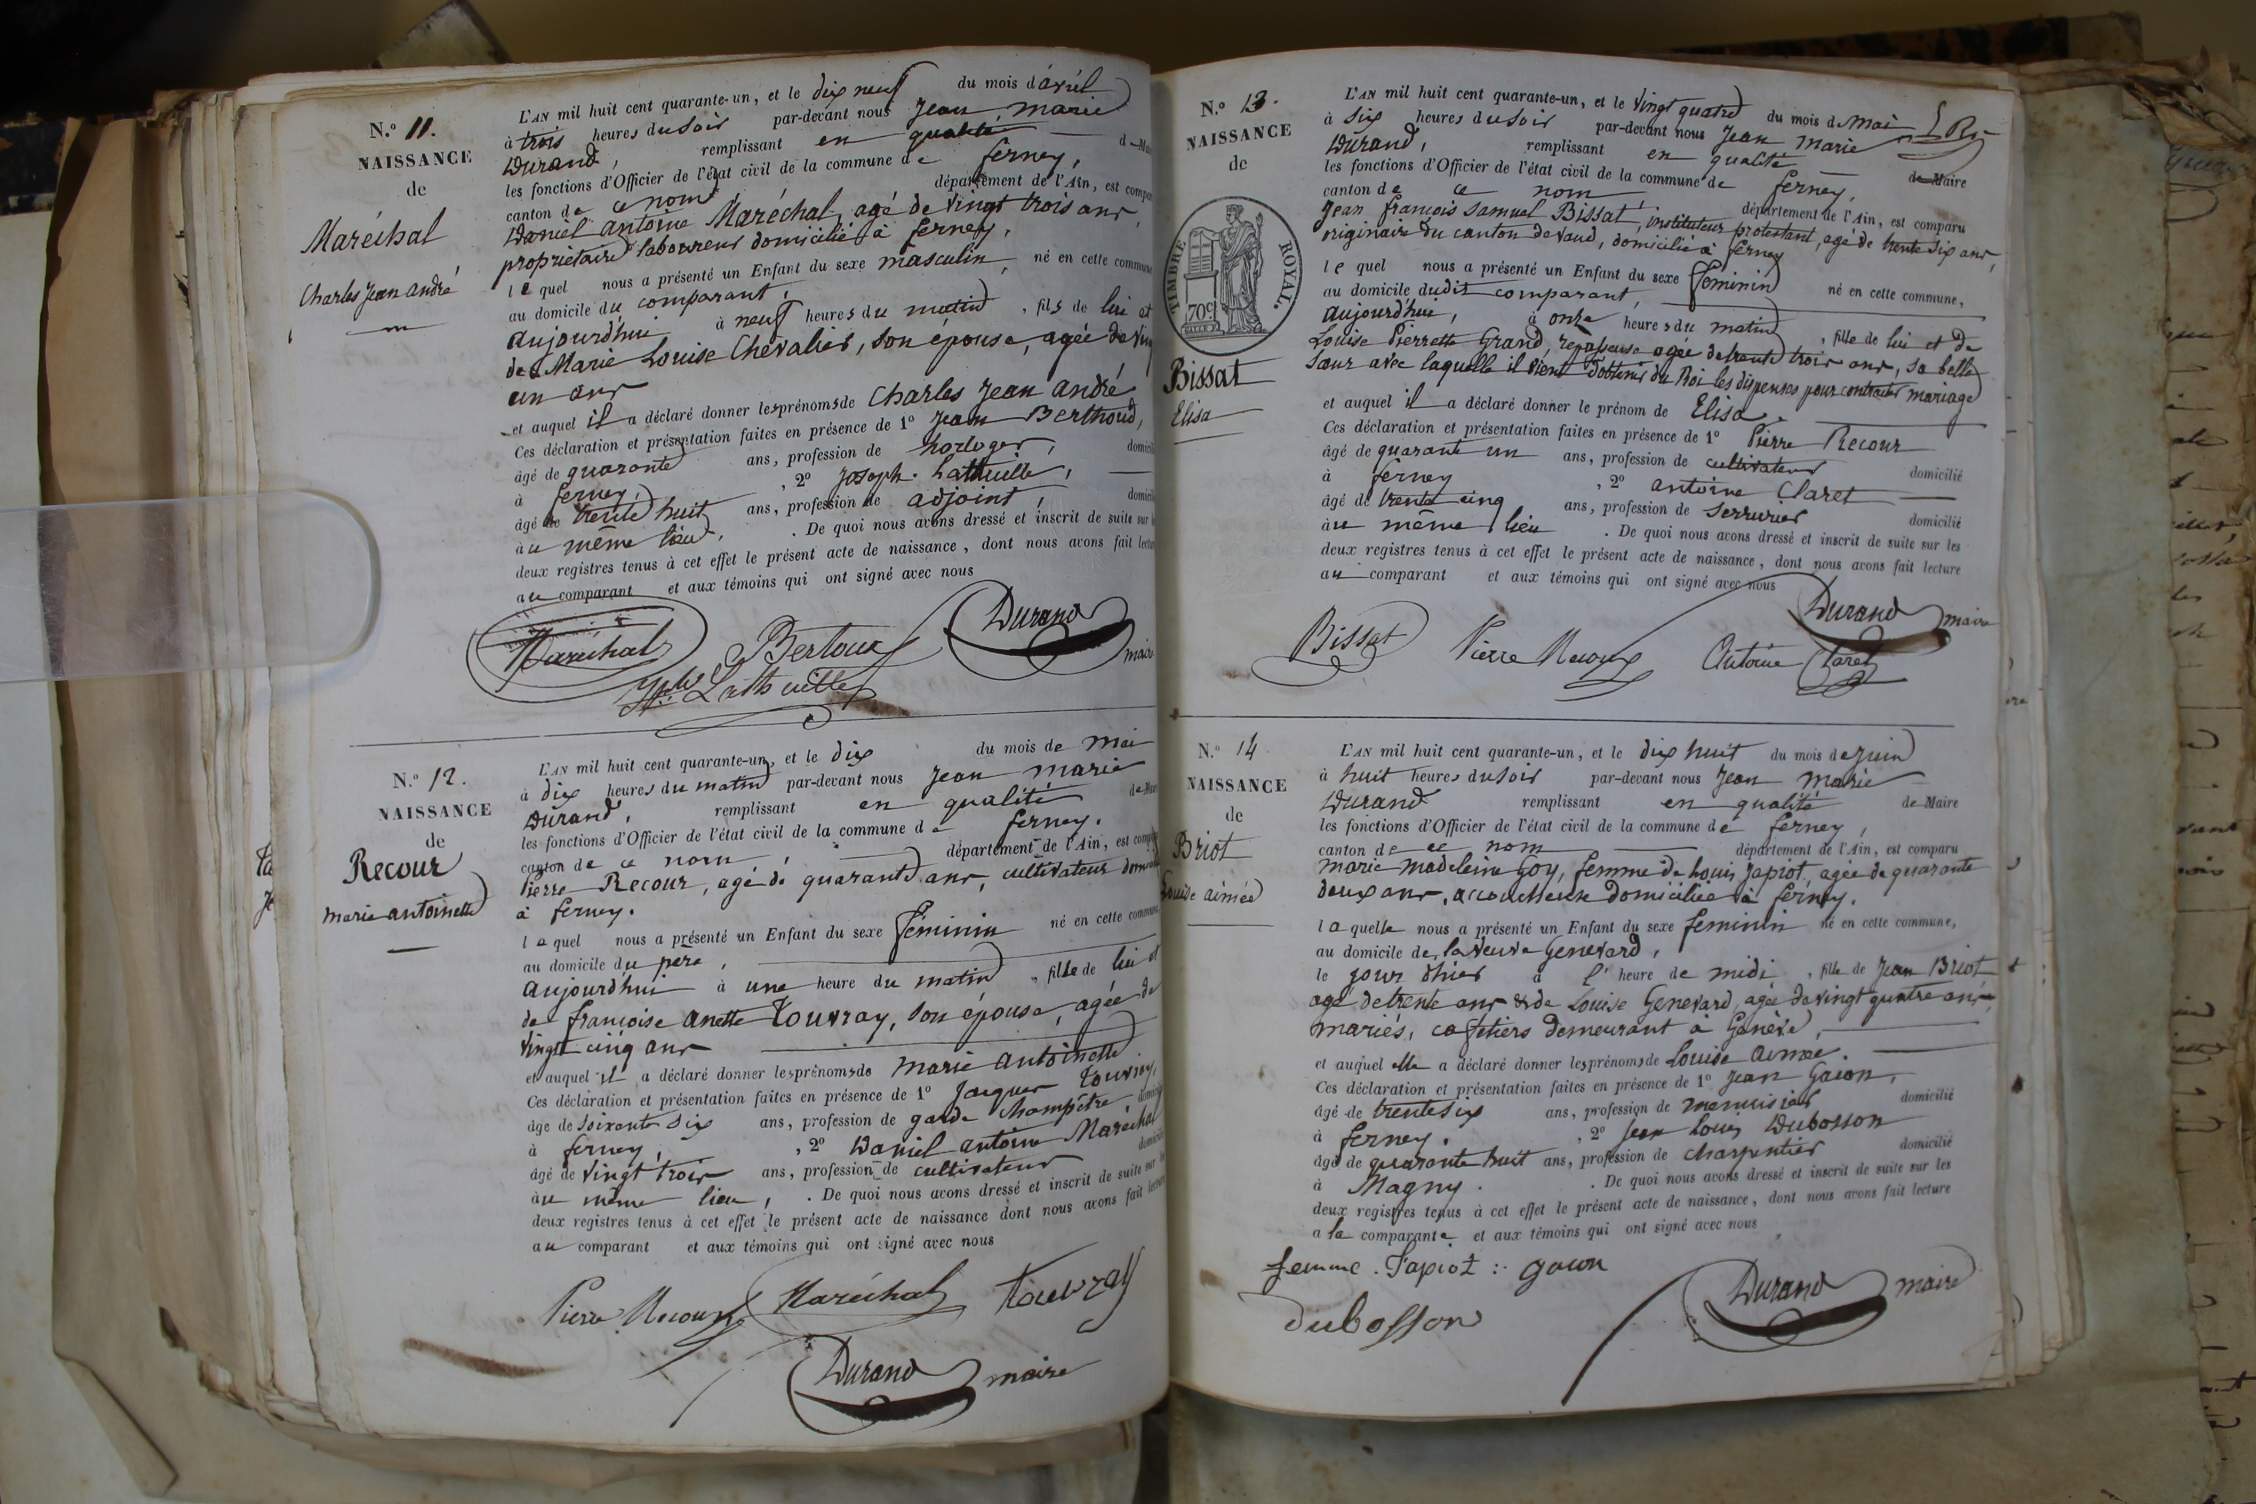 N.º 11.
NAISSANCE
de
Maréchal
Charles Jean André
L'AN mil huit cent quarante-un, et le dix neuf du mois d'avril
à trois heures du soir par-devant nous Jean Marie
Durand, remplissant en qualité de Maire
les fonctions d'Officier de l'état civil de la commune de ferney,
canton de ce nom département de l'Ain, est comparu
Daniel antoine Maréchal, agé de vingt trois ans,
propriétaire laboureur domicilié à ferney,
le quel nous a présenté un Enfant du sexe masculin né en cette commune
au domicile du comparant,
aujourd'hui à neuf heures du matin, fils de lui et
de Marie Louise Chevalier, son épouse, agée de vingt
un ans
et auquel il a déclaré donner les prénoms de Charles Jean André
Ces déclaration et présentation faites en présence de 1º Jean Berthoud,
âgé de quarante ans, profession de horloger, domicilié
à ferney, 2º Joseph Lathuille,
âgé de trente huit ans, profession de adjoint, domicilié
au même lieu, . De quoi nous avons dressé et inscrit de suite sur les
deux registres tenus à cet effet le présent acte de naissance, dont nous avons fait lecture
au comparant et aux témoins qui ont signé avec nous
Maréchal Bertoux Durand
maire
Jph Lathuille
N.º 12.
NAISSANCE
de
Recour
marie antoinette
L'AN mil huit cent quarante-un, et le dix du mois de mai
à dix heures du matin par-devant nous Jean Marie
Durand, remplissant en qualité de Maire
les fonctions d'Officier de l'état civil de la commune de ferney.
canton de ce nom département de l'Ain, est comparu
Pierre Recour, agé de quarante ans, cultivateur domicilié
à ferney.
le quel nous a présenté un Enfant du sexe féminin né en cette commune
au domicile du père,
aujourd'hui à une heure du matin, fille de lui et
de françoise anette Touvray, son épouse, agée de
vingt cinq ans
et auquel il a déclaré donner les prénoms de marie antoinette
Ces déclaration et présentation faites en présence de 1º Jacques Touvray,
âge de soixante six ans, profession de garde champêtre, domicilié
à ferney, 2º Daniel antoine Maréchal
âgé de vingt trois ans, profession de cultivateur domicilié
au même lieu, . De quoi nous avons dressé et inscrit de suite sur les
deux registres tenus à cet effet le présent acte de naissance dont nous avons fait lecture
au comparant et aux témoins qui ont signé avec nous
Pierre Recour Maréchal Touvray
Durand maire
N.º 13.
NAISSANCE
de
TIMBRE ROYAL.
70c
Bissat
Elisa
L'AN mil huit cent quarante-un, et le vingt quatre du mois de mai
à six heures du soir par-devant nous Jean Marie
Durand, remplissant en qualité de Maire
les fonctions d'Officier de l'état civil de la commune de ferney,
canton de ce nom département de l'Ain, est comparu
Jean françois Samuel Bissat, instituteur protestant, agé de trente six ans,
originaire du canton de vaud, domicilié à ferney
le quel nous a présenté un Enfant du sexe féminin né en cette commune,
au domicile dudit comparant,
aujourd'hui, à onze heures du matin, fille de lui et de
Louise Pierrette Grand, repasseuse agée de trente trois ans, sa belle
soeur avec laquelle il vient d'obtenir du Roi les dispenses pour contracter mariage
et auquel il a déclaré donner le prénom de Elisa.
Ces déclaration et présentation faites en présence de 1º Pierre Recour
âgé de quarante un ans, profession de cultivateur domicilié
à ferney, 2º antoine Claret
âgé de trente cinq ans, profession de serrurier domicilié
au même lieu . De quoi nous avons dressé et inscrit de suite sur les
deux registres tenus à cet effet le présent acte de naissance, dont nous avons fait lecture
au comparant et aux témoins qui ont signé avec nous
Bissat Pierre Recour Antoine Claret Durand maire
N.º 14
NAISSANCE
de
Briot
Louise aimée
L'AN mil huit cent quarante-un, et le dix huit du mois de juin
à huit heures du soir par-devant nous Jean Marie
Durand remplissant en qualité de Maire
les fonctions d'Officier de l'état civil de la commune de ferney,
canton de ce nom département de l'Ain, est comparu
marie madeleine Goy, femme de Louis Japiot, agée de quarante
deux ans, accoucheuse domiciliée à ferney.
la quelle nous a présenté un Enfant du sexe féminin né en cette commune,
au domicile de la veuve Genevard,
le jour d'hier à l' heure de midi, fille de Jean Briot
agé de trente ans & de Louise Genevard, agée de vingt quatre ans,
mariés, cafetiers demeurant à Genève,
et auquel elle a déclaré donner les prénoms de Louise aimée.
Ces déclaration et présentation faites en présence de 1º Jean Gacon,
âgé de trente six ans, profession de menuisier domicilié
à ferney. 2º Jean Louis Dubosson
âgé de quarante huit ans, profession de charpentier domicilié
à Magny. . De quoi nous avons dressé et inscrit de suite sur les
deux registres tenus à cet effet le présent acte de naissance, dont nous avons fait lecture
a la comparante et aux témoins qui ont signé avec nous
femme Japiot gacon
Dubosson Durand maire